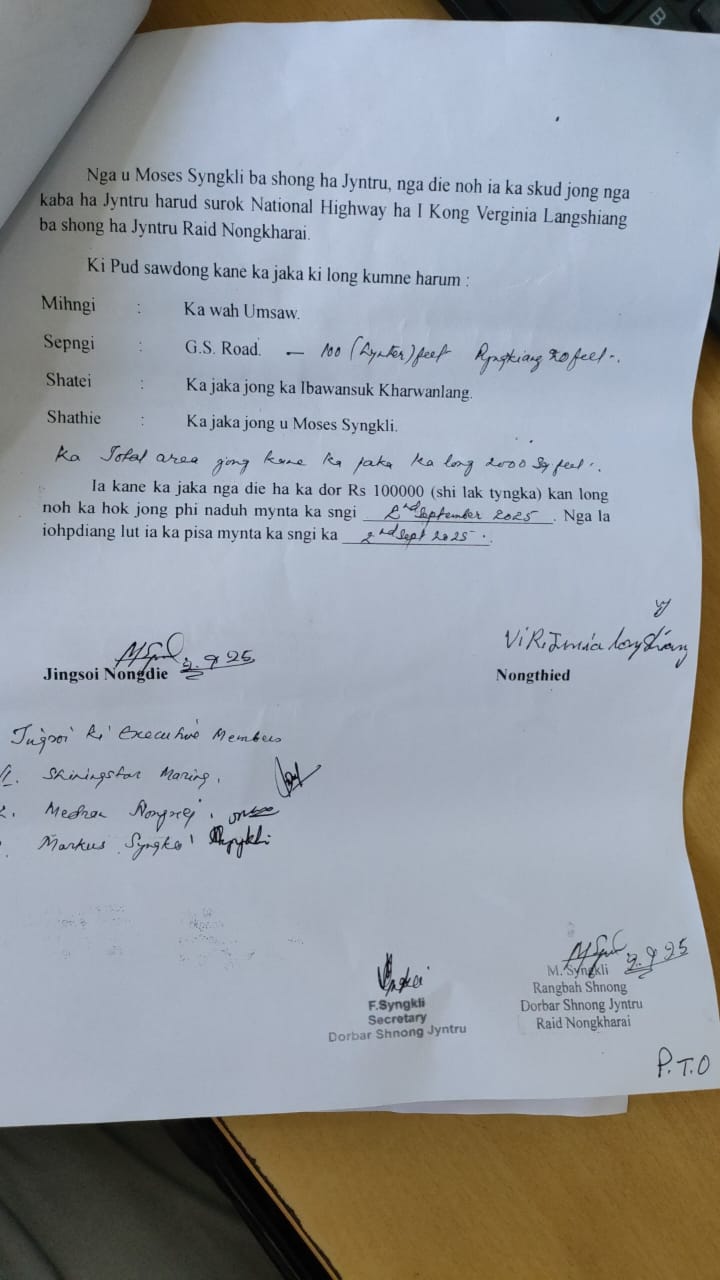 Nga u Moses Syngkli ba shong ha Jyntru, nga die noh ia ka skud jong nga
kaba ha Jyntru harud surok National Highway ha I Kong Verginia Langshiang
ba shong ha Jyntru Raid Nongkharai.
Ki Pud sawdong kane ka jaka ki long kumne harum :
Mihngi : Ka wah Umsaw.
Sepngi : G.S. Road. — 100 (Jynter) feet Pyngkiang 20 feet.
Shatei : Ka jaka jong ka Ibawansuk Kharwanlang.
Shathie : Ka jaka jong u Moses Syngkli.
Ka Total area jong kane ka jaka ka long 2000 Sq feet.
Ia kane ka jaka nga die ha ka dor Rs 100000 (shi lak tyngka) kan long
noh ka hok jong phi naduh mynta ka sngi 2nd September 2025. Nga la
iohpdiang lut ia ka pisa mynta ka sngi ka 2nd Sept 2025.
2.9.25
Jingsoi Nongdie Nongthied
Jingsoi ki Executive Members
1. Shiningstar Maring.
Markus Syngkli
M. Syngkli 2.9.25
F.Syngkli Rangbah Shnong
Secretary Dorbar Shnong Jyntru
Dorbar Shnong Jyntru Raid Nongkharai
P.T.O